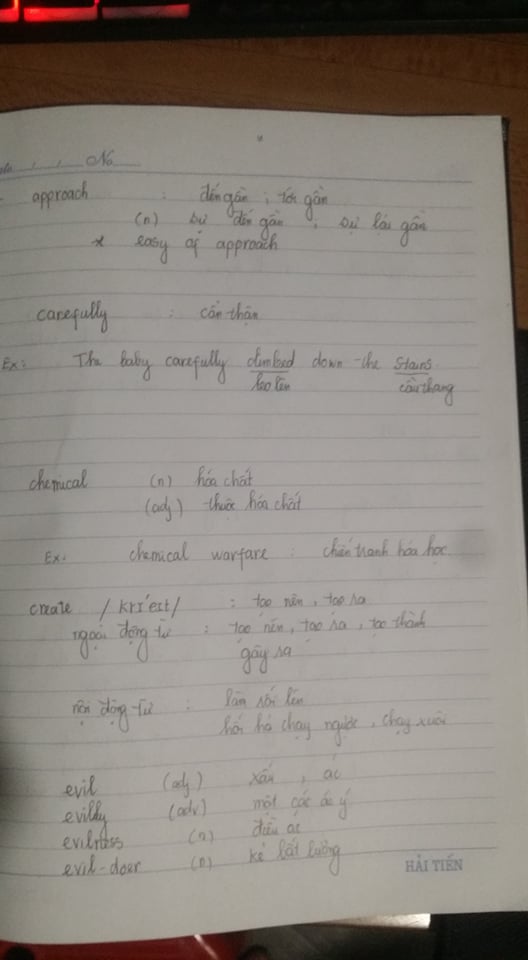 No
approach : đến gần ; tới gần
(n) sự đến gần ; sự lại gần
* easy of approach
carefully : cẩn thận
Ex: The baby carefully climbed down the stairs.
leo lên cầu thang
chemical (n) hóa chất
(adj) thuộc hóa chất
Ex. chemical warfare : chiến tranh hóa học
create /kri'eit/ : tạo nên, tạo ra
ngoại động từ : tạo nên, tạo ra, tạo thành
gây ra
nội động từ : làm rối lên
hối hả chạy ngược, chạy xuôi
evil (adj) xấu, ác
evilly (adv) một các ác ý
evilness (n) điều ác
evil-doer (n) kẻ bất lương
HẢI TIẾN